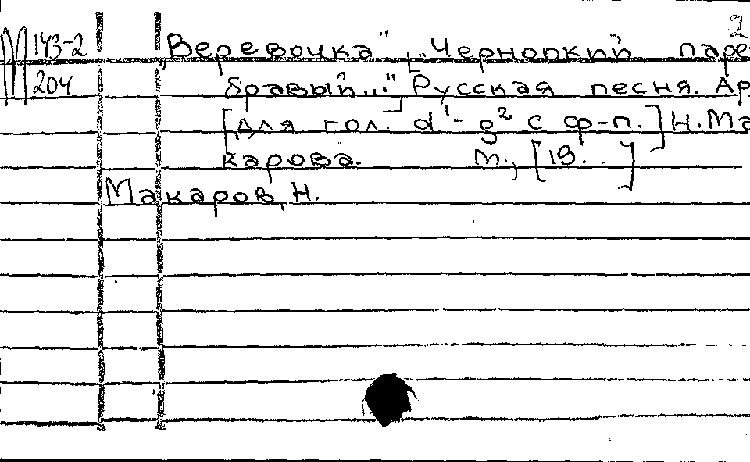 2
М 143-2 „Веревочка" [„Чернокий паре
204 бравый..."] Русская песня. Ар
[для гол. d¹-g² с ф-п.] Н.Ма
карова. М., [18. . ]
Макаров, Н.